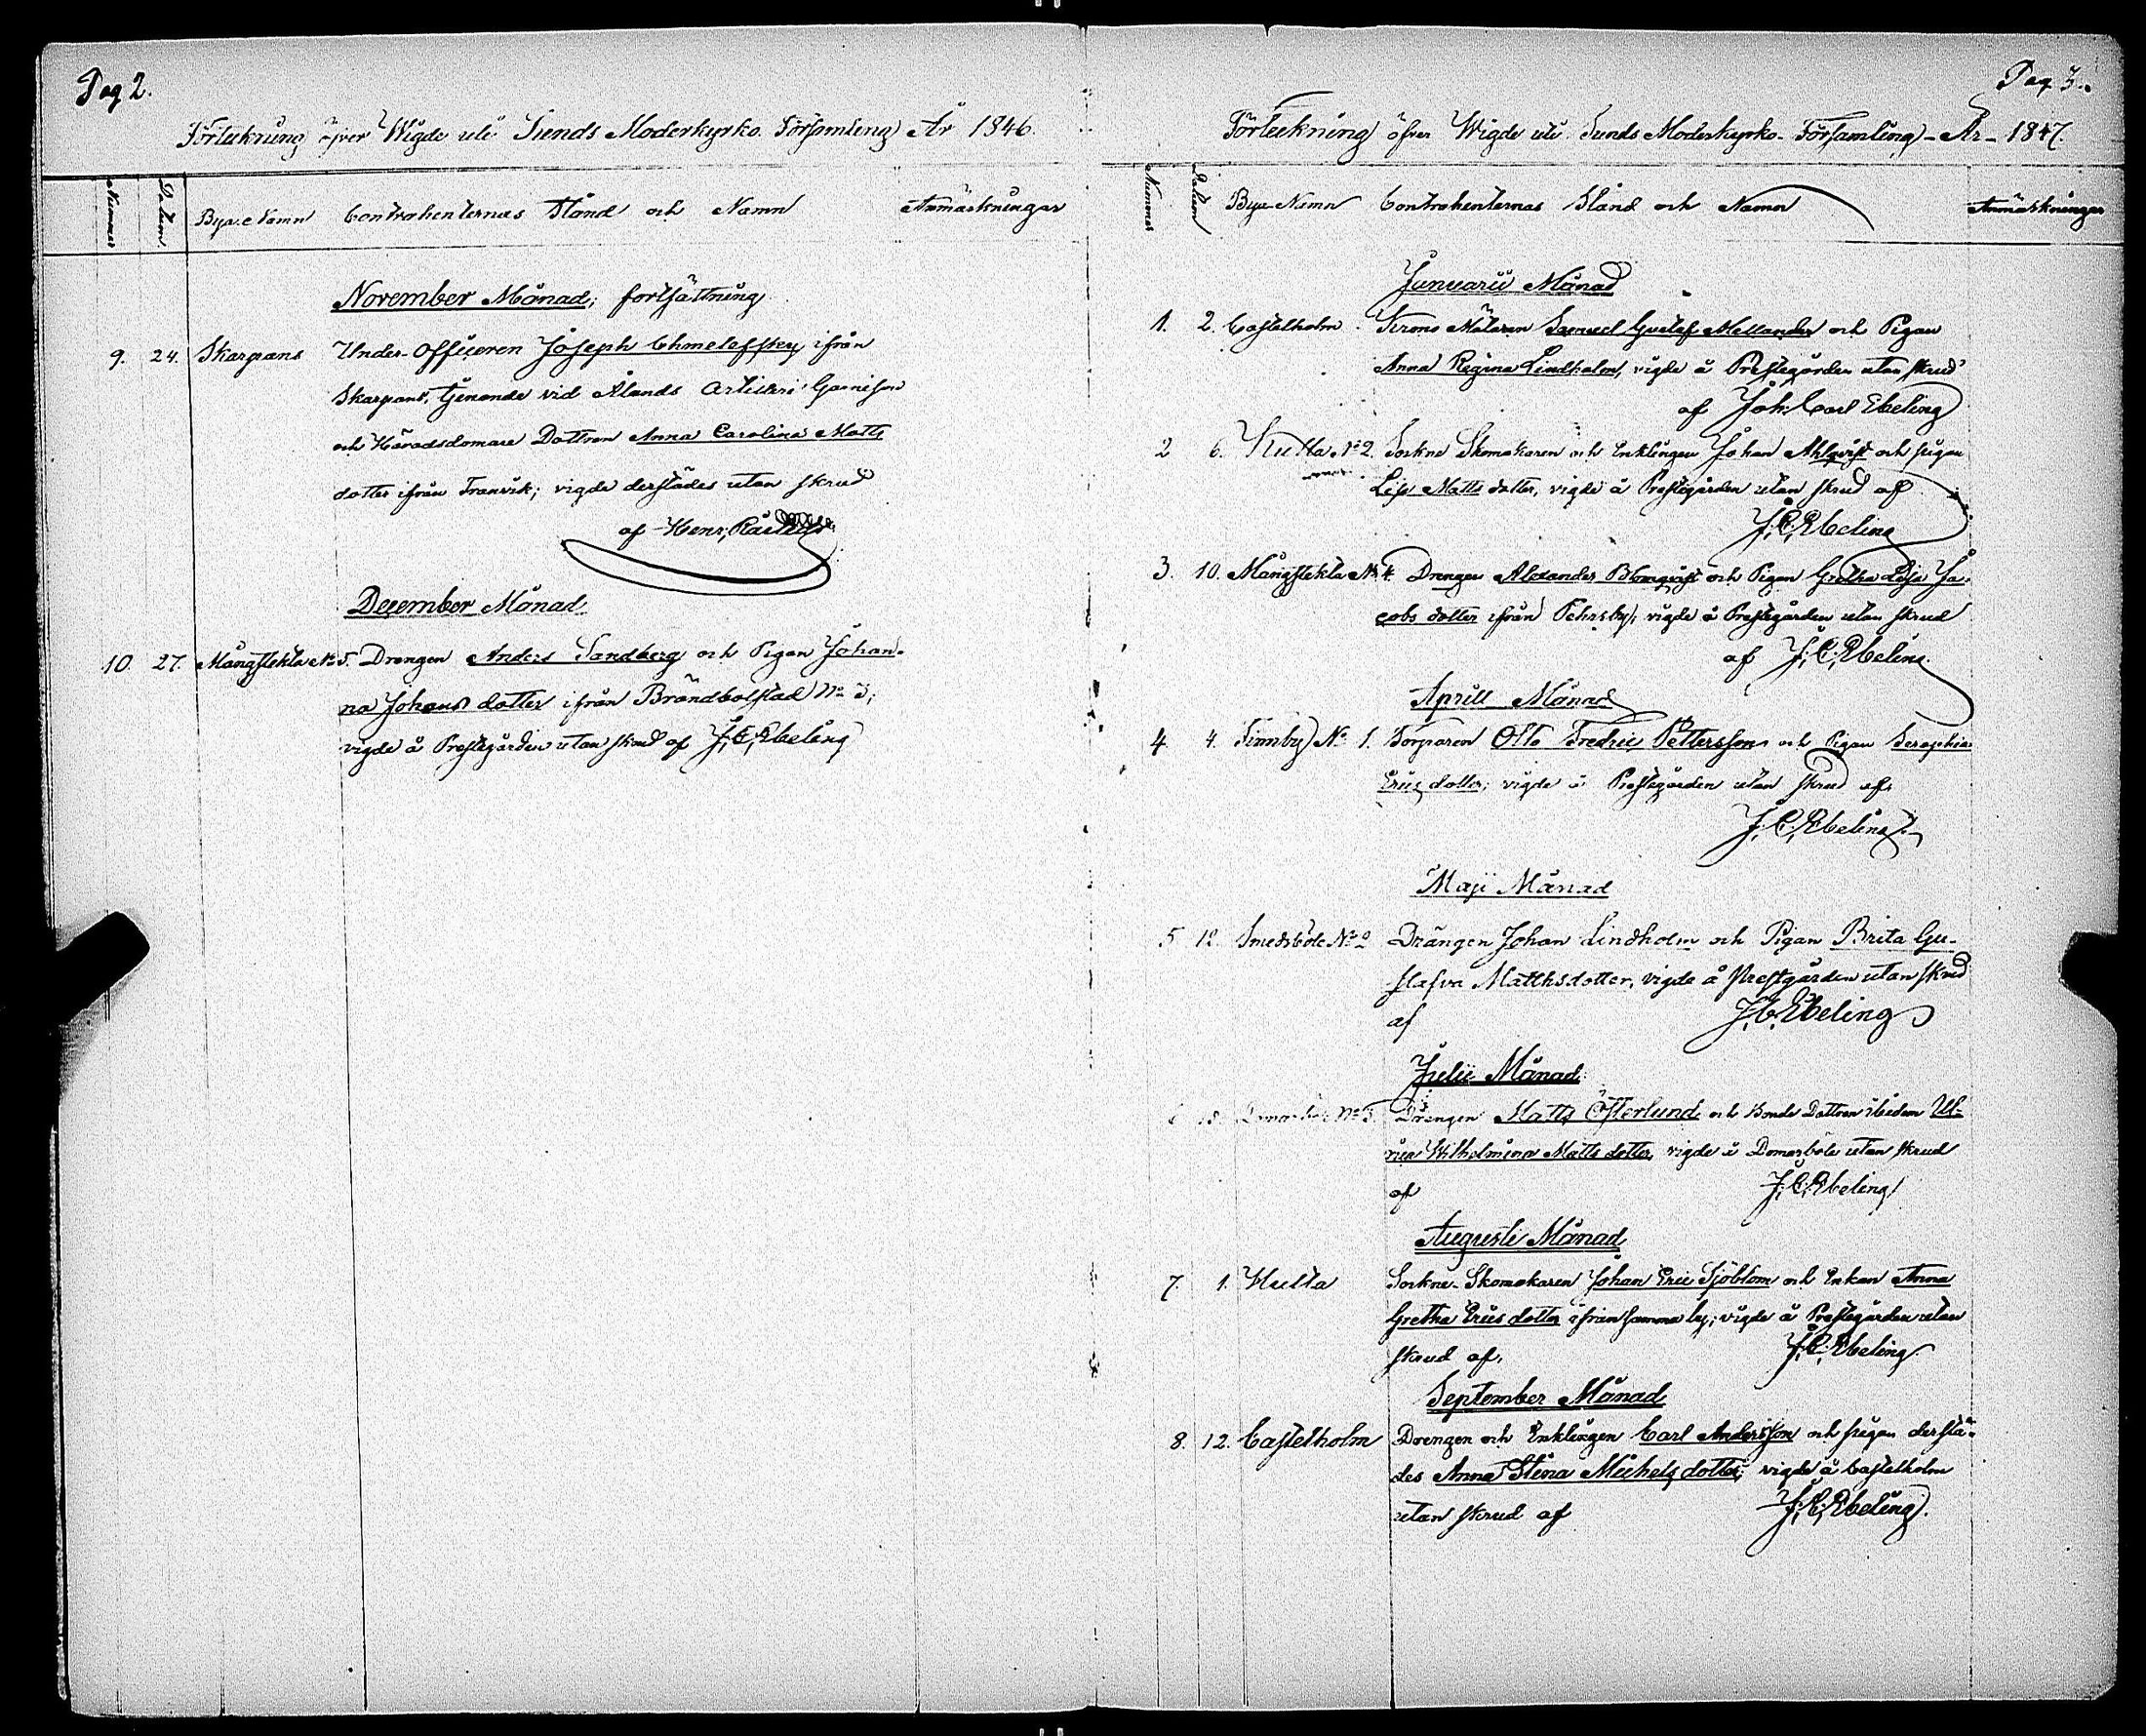 Pag 2.
Förteckning öfver Wigde uti Sunds Moderkyrko Församling År 1846.
Nummer
Datum.
Bya. Namn
Contrahenternas Stånd och Namn
Anmärkningar
November Månad; fortsättning
9. 24. Skarpans Under-Officeren Joseph Chmeleffsky ifrån
Skarpans, tjenande vid Ålands Artilleri Garnison
och Häradsdomare Dottren Anna Carolina Matts
dotter ifrån Tranvik; vigde derstädes utan skrud
af Henr;
December Månad
10. 27. Mångstekta No 5. Drengen Anders Sandberg och Pigan Johan-
na Johans dotter ifrån Brändbolstad No 3;
vigde å Prestegården utan skrud af J; C; Ebeling
Pag 3.
Förteckning öfver Wigde uti Sunds Moderkyrko-Församling-År-1847.
Nummer
Datum
Bya Namn
Contrahenternas Stånd och Namn
Anmärkningar
Januarii Månad
1. 2. Castelholm. Krono Målaren Samuel Gustaf Mellander och Pigan
Anna Regina Lindholm, vigde å Prestegården utan skrud
af Joh: Carl Ebeling
2 6. Hulta No 2. Sockne Skomakaren och Enklingen Johan Ahlqvist och pigan
Lisa Matts dotter, vigde å Prestegården utan skrud af
J; C; Ebeling
3. 10. Mångstekta No 4. Drengen Alexander Blomqvist och Pigan Gretha Lisa Ja-
cobs dotter ifrån Pehrsby; vigde å Prestegården utan skrud
af J; C; Ebeling.
Aprill Månad
4 4. Finnby No 1. Torparen Otto Fredric Pettersson och Pigan Seraphia
Erics dotter; vigde å Prestegården utan skrud af
J; C; Ebeling.
Maji Månad
5 12. Smedsböle No 2 Drängen Johan Lindholm och Pigan Brita Gu-
stafva Matthsdotter, vigde å Prestgården utan skrud
af J. C. Ebeling
Julii Månad
6 18. Domarböle No 3. Drengen Matts Österlund och Bonde Dottren ibidem Ul-
rica Wilhelmina Matts dotter, vigde å Domarböle utan skrud
af J; C; Ebeling
Augusti Månad
7. 1. Hulta Sockne-Skomakaren Johan Eric Sjöblom och Enkan Anna
Gretha Erics dotter ifrån samma by; vigde å Prestegården utan
skrud af. J; C; Ebeling
September Månad
8. 12. Castelholm Drengen och Enklingen Carl Andersson och pigan derstä-
des Anna Stina Michels dotter; vigde å Castelholm
utan skrud af J; C; Ebeling.